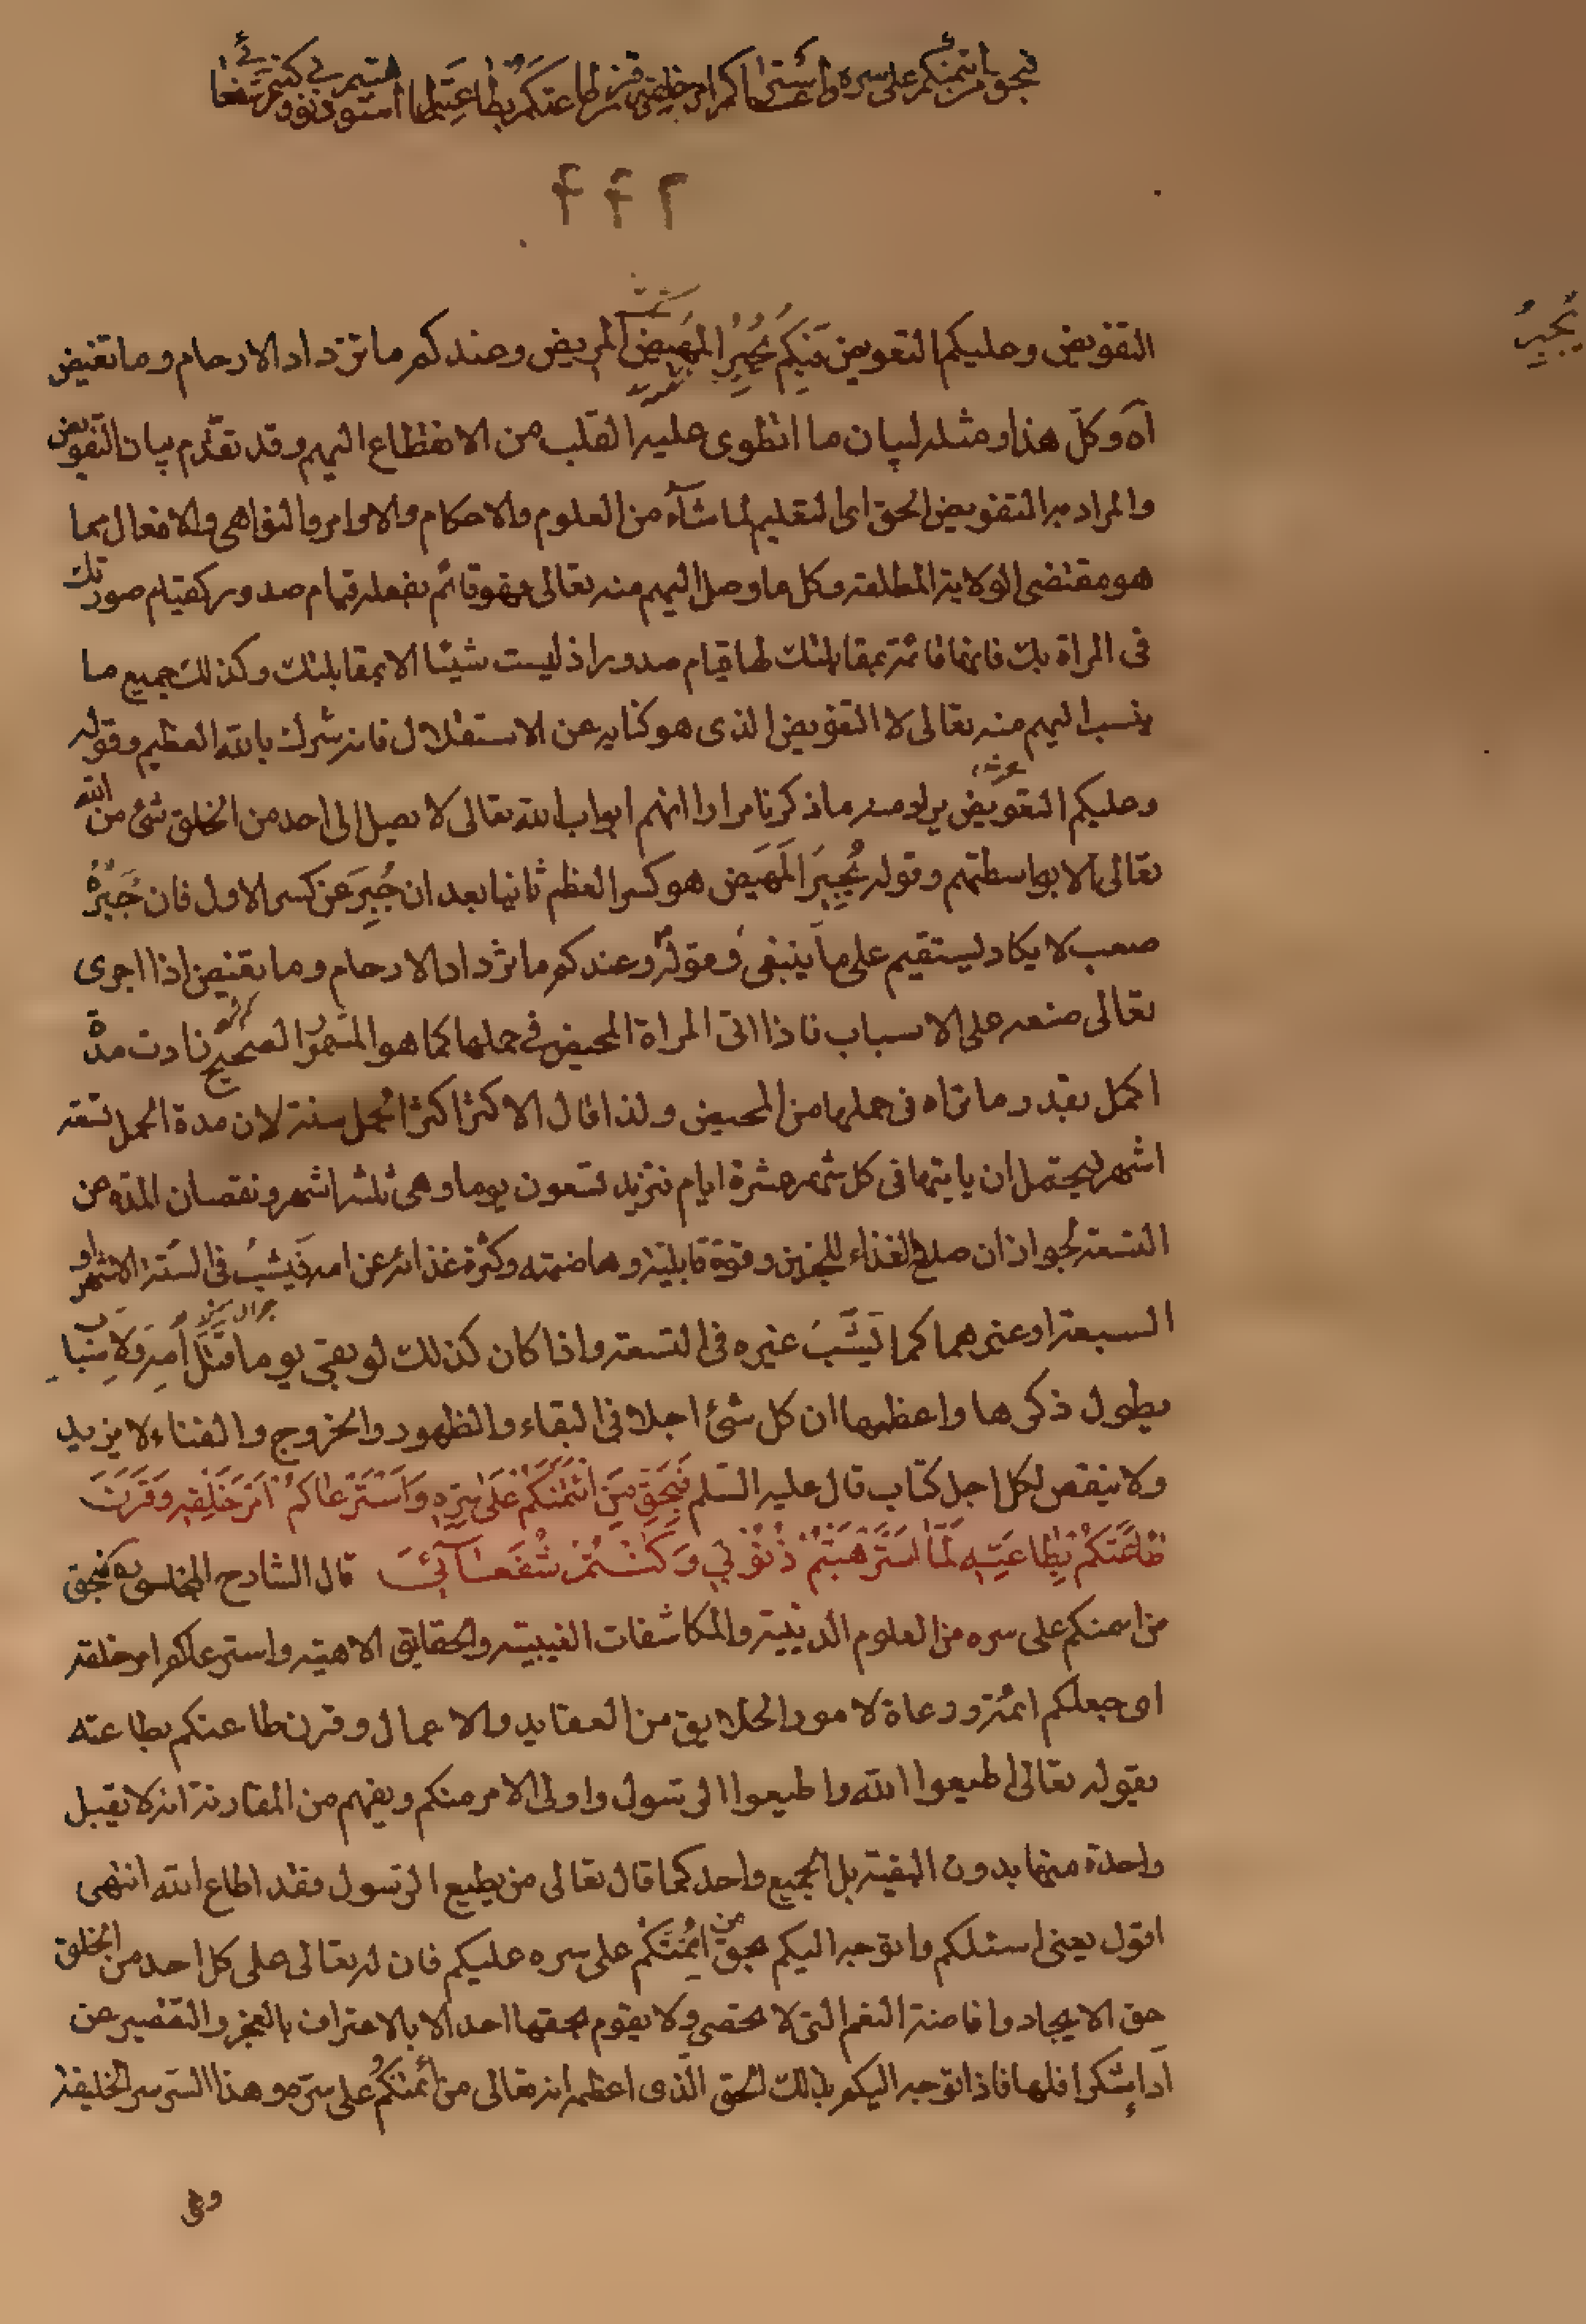 فبحق من ائتمنكم على سره واسترعاكم امر خلقه وقرن طاعتكم بطاعته لما استوهبتم ذنوبي وكنتم شفعائي
۴۴۲
يُجبرُ
التفويض وعليكم التعويض فبكم يُجبرُ المَهيض المريض وعندكم ما تزداد الارحام وما تغيض
آه وكلّ هذا ومثله لبيان ما انطوى عليه القلب من الانقطاع اليهم وقد تقدّم بيان التفويض
والمراد به التفويض الحق اى لتعليم لما شآء من العلوم والاحكام والاوامر والنواهى والافعال مما
هو مقتضى الولاية المطلقة وكل ما وصل اليهم منه تعالى فهو قائم بفعله قيام صدور كقيام صورتك
فى المراة بك فانها قائمة بمقابلتك لها قيام صدور اذ ليست شيئا الا بمقابلتك وكذلك جميع ما
ينسب اليهم منه تعالى لا التفويض الذى هو كناية عن الاستقلال فانه شرك بالله العظيم وقوله
وعليكم التعويض يراد منه ما ذكرنا مرارا انهم ابواب الله تعالى لا يصل الى احد من الخلق شئ من الله
تعالى الا بواسطتهم وقوله يُجبرُ المَهيَض هو كسر العظم ثانيا بعد ان جُبِرَ عن كسر الاول فان جَبْرُهُ
صعب لا يكاد يستقيم على ما ينبغى وقوله وعندكم ما تزداد الارحام وما تغيض اذا اجرى
تعالى صنعه على الاسباب فاذا اتى المراة المحيض فى حملها كما هو المشهور الصحيح زادت مدة
الحمل بقدر ما تراه فى حملها من المحيض ولذا قال الاكثر اكثر الحمل سنة لان مدة الحمل تسعة
اشهر ليحتمل ان ياتيها فى كل شهر عشرة ايام فتزيد تسعون يوما وهى ثلثة اشهر ونقصان المدة من
التسعة لجواز ان صلح الغذاء للجنين وقوة قابليته وهاضمته وكثرة غذائه عن امه فيشبّ فى الستة الاشهر او
السبعة او غيرهما كما يَشبّ غيره فى التسعة واذا كان كذلك لو بقى يوما قتل امه ولاسباب
يطول ذكرها واعظمها ان كل شئ اجلا فى البقاء والظهور والخروج والفناء لا يزيد
ولا ينقص لكل اجل كتاب قال عليه السّلم فَبِحَقِّ مَنِ ائْتَمَنَكُمْ عَلَى سِرِّهِ وَاسْتَرْعَاكُمْ اَمْرَ خَلْقِهِ وَقَرَنَ
طَاعَتَكُمْ بِطَاعَتِهِ لَمَّا اسْتَوْهَبْتُمْ ذُنُوْبِي وَكُنْتُمْ شُفَعَآئِيَ قال الشارح المجلسى ره فبحق
من ائتمنكم على سره من العلوم الدينية والمكاشفات الغيبية والحقايق الالهية واسترعاكم امر خلقه
اى جعلكم ائمة ورعاة لامور الخلايق من العقايد والاعمال وقرن طاعتكم بطاعته
بقوله تعالى اطيعوا الله واطيعوا الرسول واولى الامر منكم ويفهم من المقارنة انه لا يقبل
واحدة منهما بدون البقية بل الجميع واحد كما قال تعالى من يطيع الرسول فقد اطاع الله انتهى
اقول يعنى اسئلكم واتوجه اليكم بحق من ائتمنكم على سره عليكم فان له تعالى على كل احد من الخلق
حق الايجاد وافاضة النعم التى لا تحصى ولا يقوم بحقها احد الا بالاعتراف بالعجز والتقصير عن
اداء شكر اقلها فاذا توجه اليكم بذلك الحق الّذى اعظمه انه تعالى من ائتمنكم على سرّه وهذا السر سر الخليقة
وفى